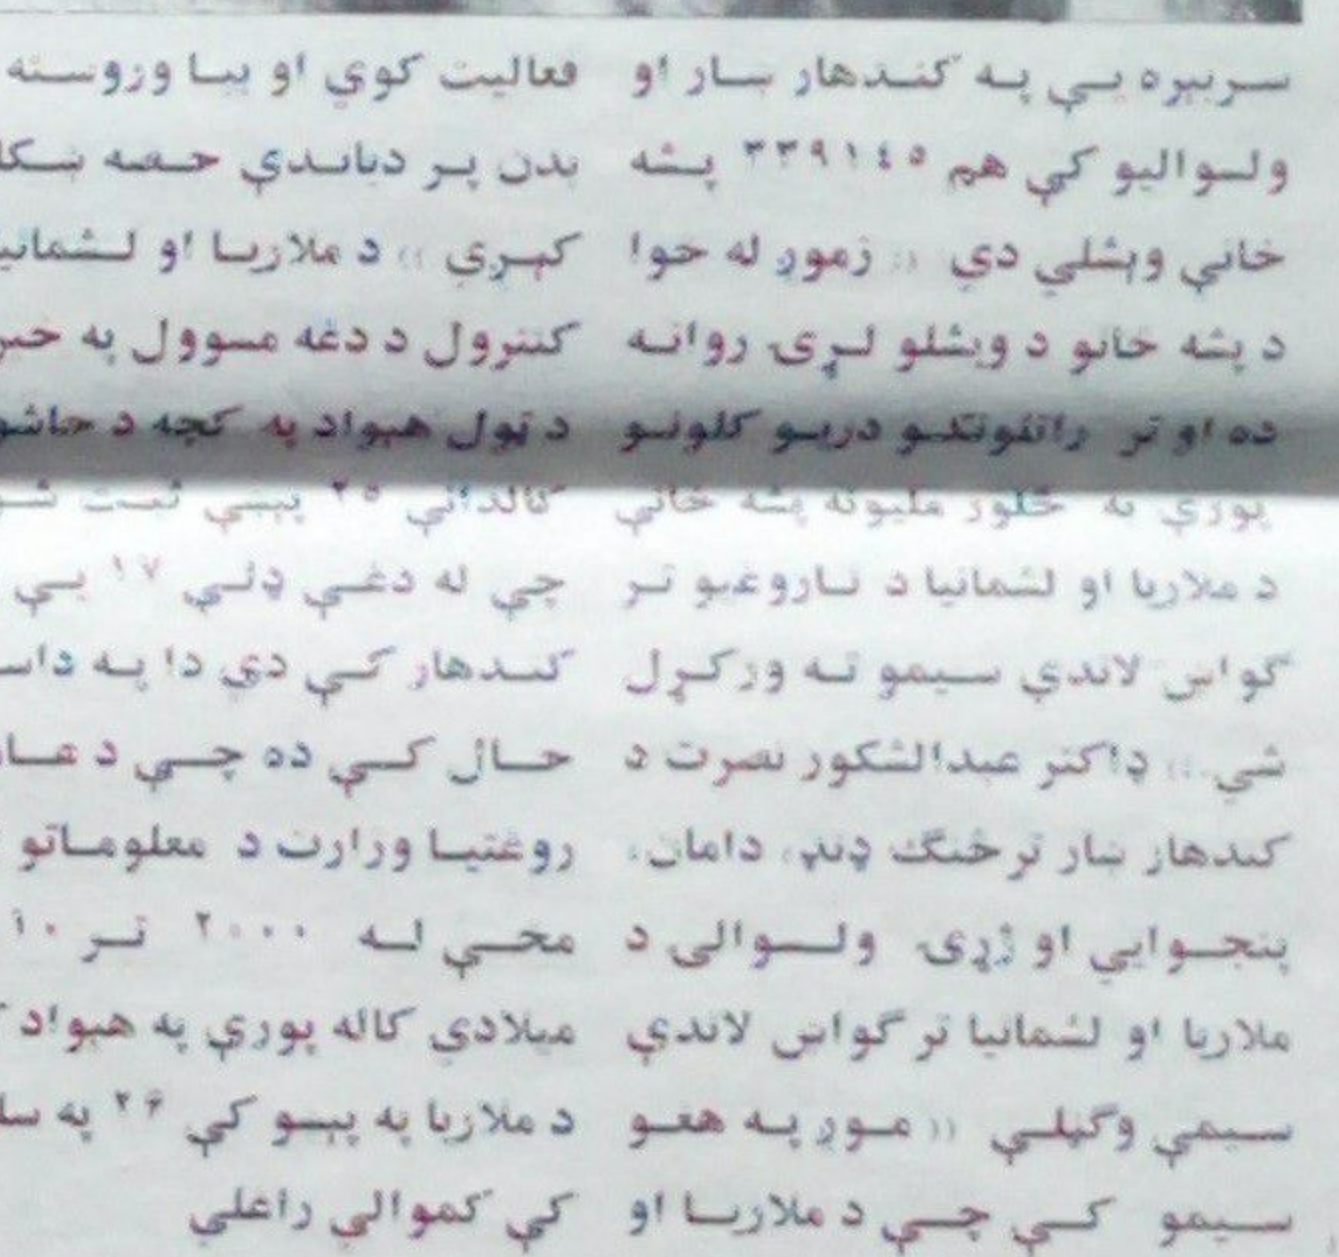 سربېره يې په کندهار ښار او
ولسواليو کې هم ۳۳۹۱٤٥ پشه
خانې وېشلي دي (( زموږ له خوا
د پشه خانو د ويشلو لړۍ روانه
ده او تر راتلونکو دريو کلونو
پورې به څلور مليونه پشه خانې
د ملاريا او لشمانيا د ناروغيو تر
گواښ لاندې سيمو ته ورکړل
شي.)) ډاکتر عبدالشکور نصرت د
کندهار ښار ترڅنگ ډنډ، دامان،
پنجوايي او ژړۍ ولسوالۍ د
ملاريا او لشمانيا تر گواښ لاندې
سيمې وگڼلې (( موږ په هغو
سيمو کې چې د ملاريا او
فعاليت کوي او بيا وروسته
بدن پر دباندې حصه ښکا
کېږي )) د ملاريا او لشمانيا
کنترول د دغه مسوول په خبر
د ټول هېواد په کچه د
کالداني ۲٥ پېښې ثبت شو
چې له دغې ډلې ۱۷ يې
کندهار کې دي دا په داس
حال کې ده چې د عا
روغتيا وزارت د معلوماتو
مخې له ۲۰۰۰ تر ۲۰۱۰
ميلادي کاله پورې په هېواد ک
د ملاريا په پېښو کې ۲۶ په سل
کې کموالی راغلی